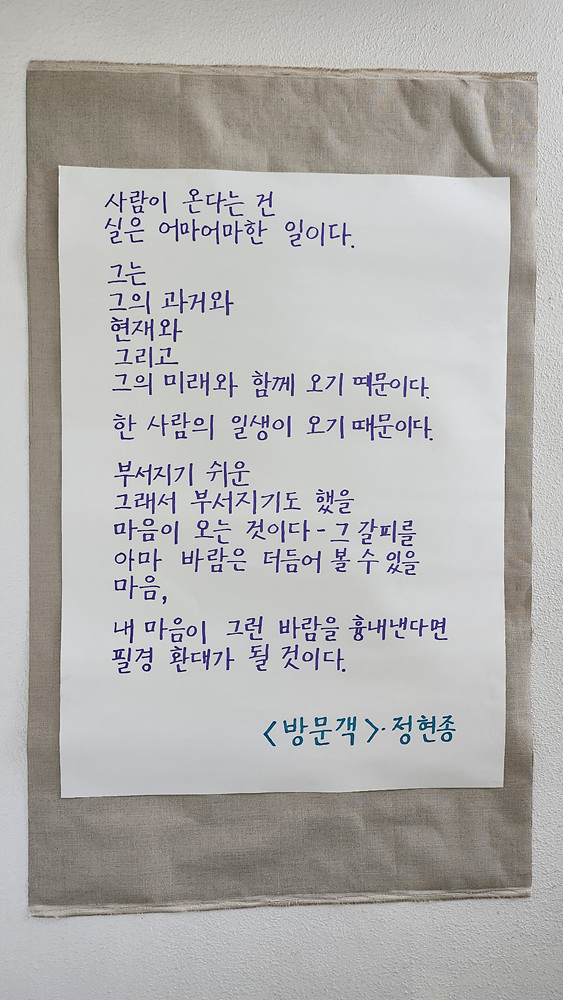 사람이 온다는 건
실은 어마어마한 일이다.
그는
그의 과거와
현재와
그리고
그의 미래와 함께 오기 때문이다.
한 사람의 일생이 오기 때문이다.
부서지기 쉬운
그래서 부서지기도 했을
마음이 오는 것이다 - 그 갈피를
아마 바람은 더듬어 볼 수 있을
마음,
내 마음이 그런 바람을 흉내낸다면
필경 환대가 될 것이다.
<방문객>· 정현종